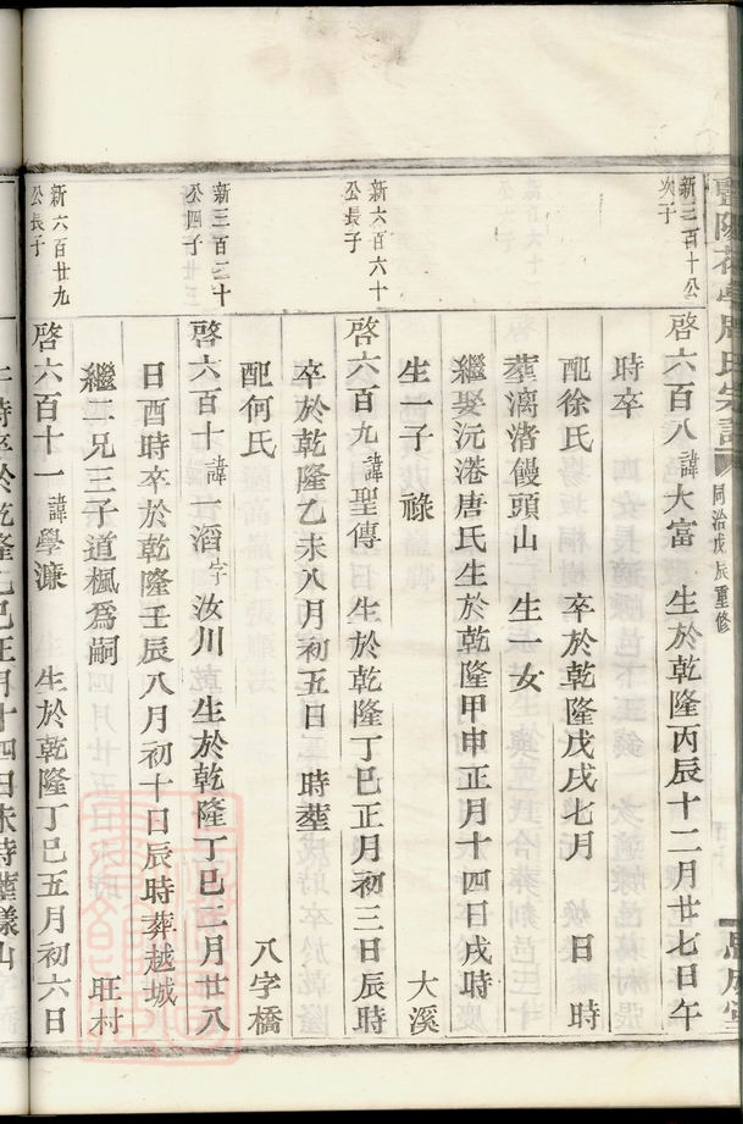 暨陽花亭周氏宗譜 同治戊辰重修
新三百十公
次子
啓六百八 諱大富 生於乾隆丙辰十二月廿七日午
時卒
配徐氏 卒於乾隆戊戌七月 日 時
葬漓渚饅頭山 生一女
繼娶沅港唐氏生於乾隆甲申正月十四日戌時
生一子 祿 大溪
新六百六十
公長子
啓六百九 諱聖傳 生於乾隆丁巳正月初三日辰時
卒於乾隆乙未八月初五日 時塟
配何氏 八字橋
新三百二十
公四子
啓六百十 諱一滔 字汝川 生於乾隆丁巳二月廿八
日酉時卒於乾隆壬辰八月初十日辰時葬越城
繼二兄三子道楓爲嗣 旺村
新六百廿九
公長子
啓六百十一 諱學濂 生於乾隆丁巳五月初六日
午時卒於乾隆己巳正月十四日未時塟樣山